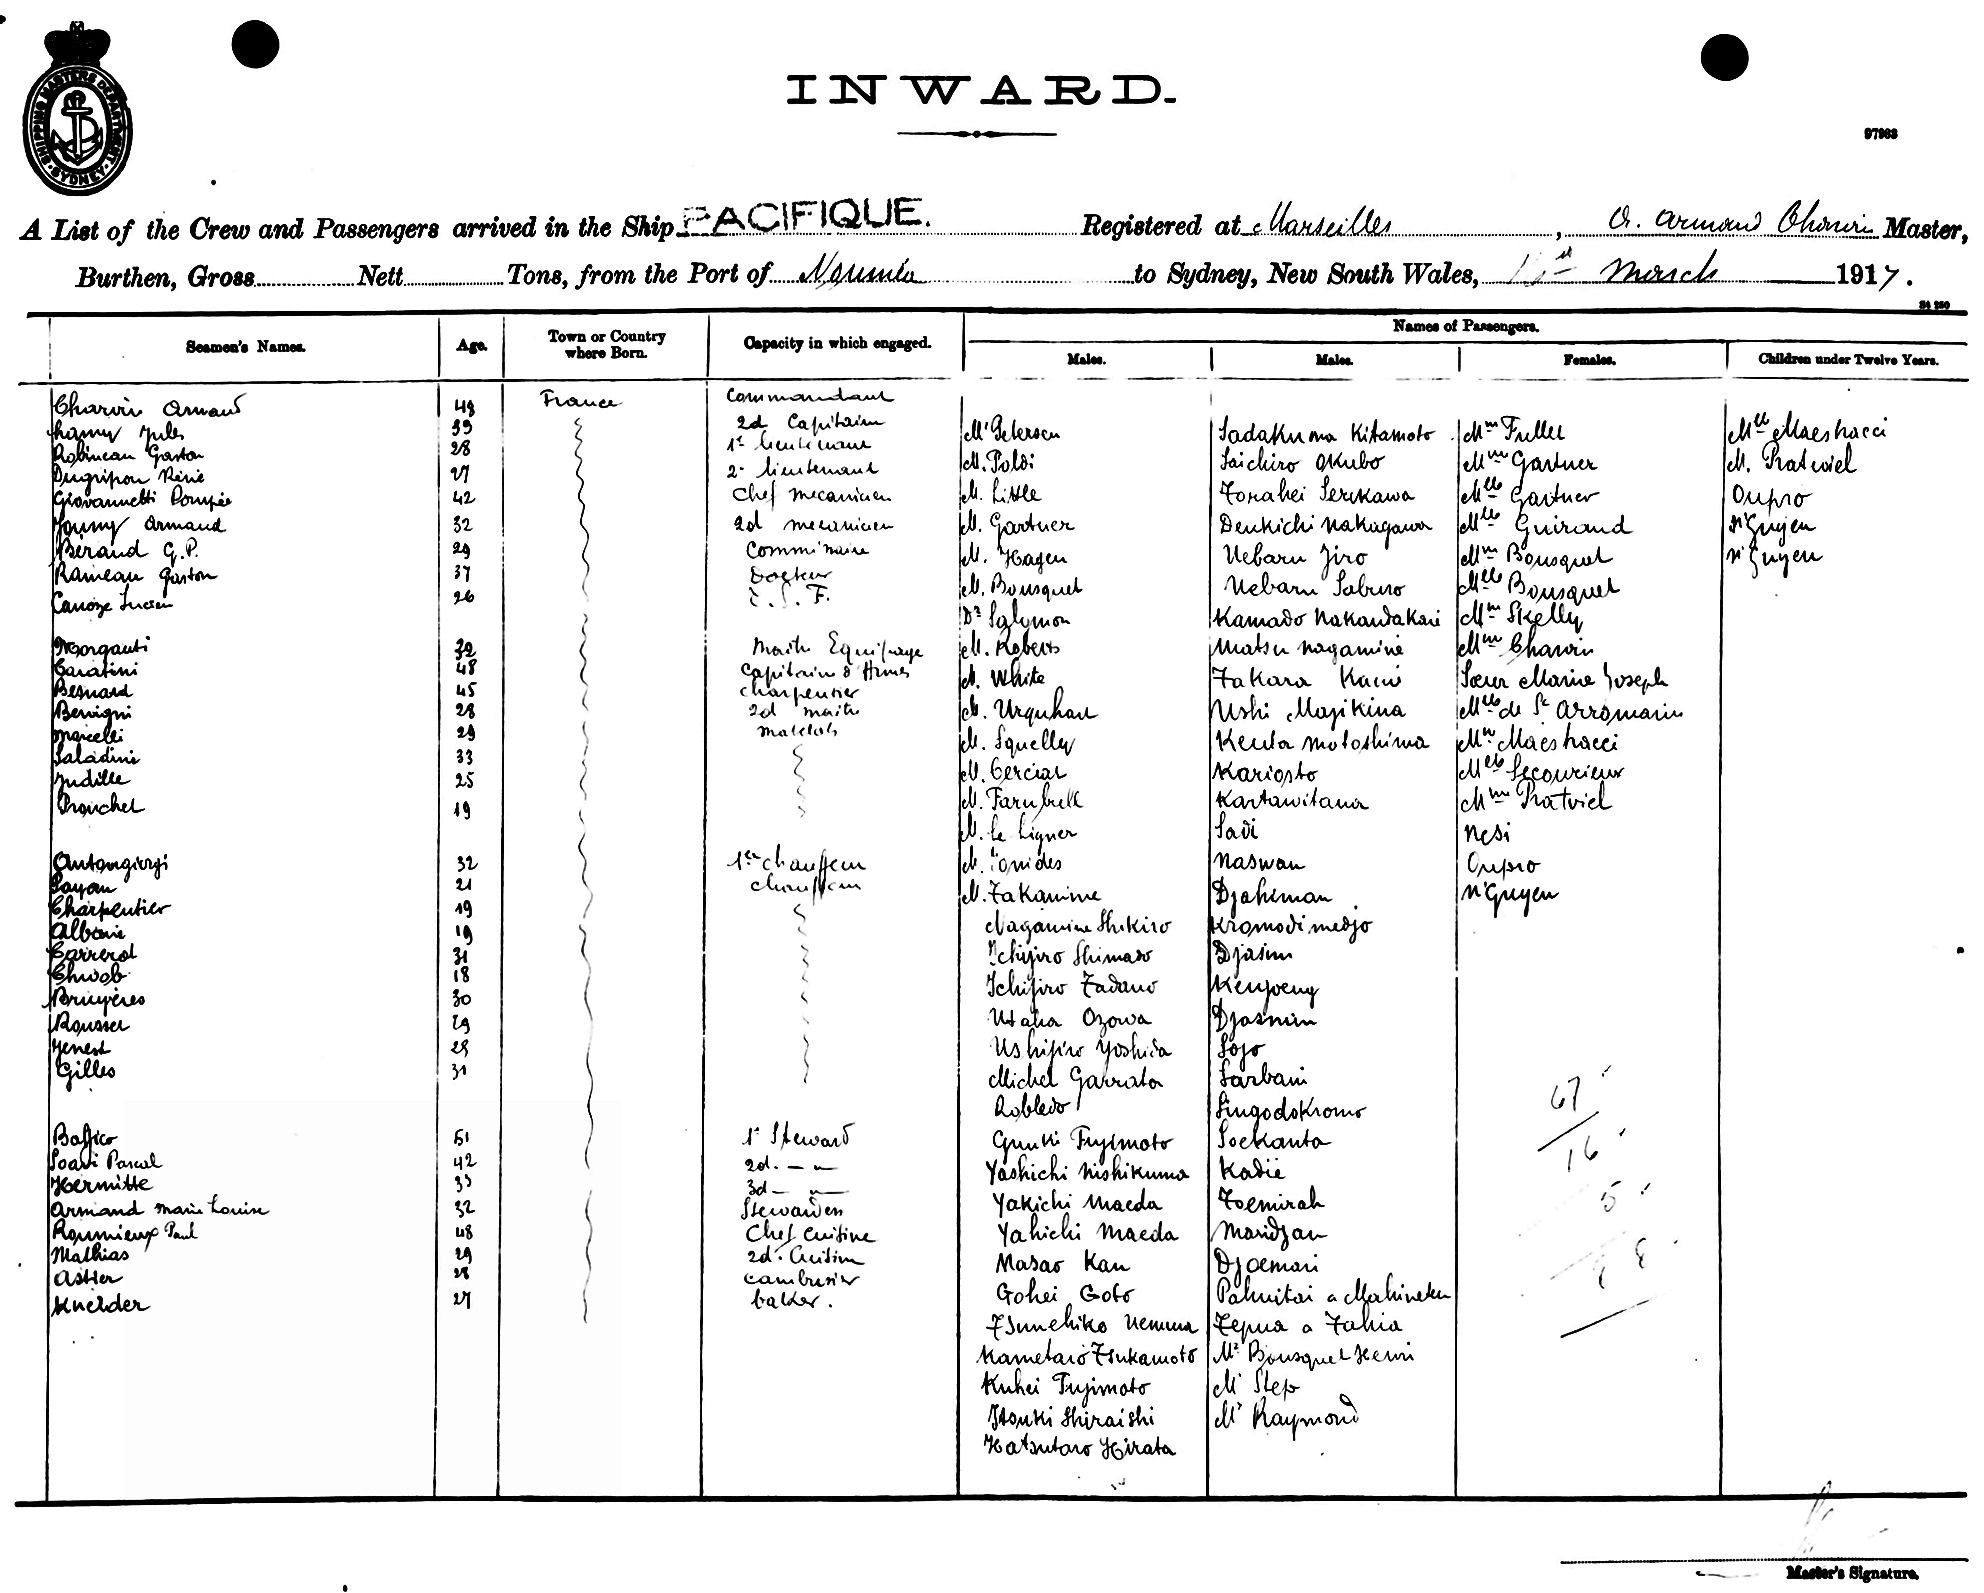 SHIPPING MASTERS DEPARTMENT SYDNEY
INWARD.
97963
A List of the Crew and Passengers arrived in the Ship PACIFIQUE. Registered at Marseilles, A. Armand Charvin Master,
Burthen, Gross Nett Tons, from the Port of Nouméa to Sydney, New South Wales, March 1917.
Names of Passengers.
Seamen's Names. Age. Town or Country where Born. Capacity in which engaged. Males. Males. Females. Children under Twelve Years.
Charvin Armand 48 France Commandant
Lamy Jules 39 2d Capitaine
Robineau Gaston 28 1er lieutenant
Dugripon Réné 27 2e lieutenant
Giovannetti Pompée 42 Chef mecanicien
Jouny Armand 32 2d mecanicien
Béraud G.P. 29 Commissaire
Rameau Gaston 37 Docteur
Lucien 26 T.S.F.
Morganti 32 Maitre Equipage
Caratini 48 Capitaine d'Armes
Besnard 45 charpentier
Benigni 28 2d maitre
Marcelli 29 matelots
Saladini 33
Judille 25
Prouchet 19
Antongiorgi 32 1er chauffeur
Payan 21 chauffeur
Charpentier 19
Albanie 19
Carrerot 31
Chwob 18
Bruyères 30
Rousser 29
Jenest 29
Gilles 31
Baffico 51 1r Steward
Soavi Pascal 42 2d. — " —
Hermitte 33 3d — " —
Armand Marie Louise 32 Stewardess
Roumieux Paul 48 Chef Cuisine
Mathias 29 2d. Cuisine
Astier 28 cambusier
Knelder 27 baker.
Mr Petersen
M. Poldi
M. Little
M. Gartner
M. Hagen
M. Bousquet
Dr Salomon
M. Roberts
M. White
M. Urquhart
M. Squelly
M. Cercial
M. Farnbell
M. Le Ligner
M. Ionides
M. Takamine
Nagamine Shikiro
Ichijiro Shimado
Ichijiro Tadano
Utaka Ozowa
Ushijiro Yoshida
Michel Garrata
Robledo
Gunki Fujimoto
Yashichi Nishikuma
Yakichi Maeda
Yahichi Maeda
Masao Kan
Gohei Goto
Tsunehiko Uemura
Kametaro Tsukamoto
Kuhei Fujimoto
Itsuki Shiraishi
Hatsutaro Hirata
Sadakuma Kitamoto
Saichiro Okubo
Torahei Serikawa
Denkichi Nakagawa
Uebaru Jiro
Uebaru Saburo
Kamado Nakandakari
Matsu Nagamine
Takara Kami
Ushi Majikina
Kenta Motoshima
Kariosto
Kartawitana
Sadi
Naswan
Djakiman
Kromodimedjo
Djasim
Kenpoeng
Djasmin
Sojo
Sarbani
Singodokromo
Soekanta
Kadie
Toemirah
Maridjan
Djoemari
Pahuitai a Mahinetu
Tepua a Tahia
Mr Bousquet Henri
Mr Step
Mr Raymond
Mme Fuller
Mme Gartner
Mlle Gartner
Mlle Guiraud
Mme Bousquet
Mlle Bousquet
Mme Skelly
Mme Charvin
Sœur Marie Joseph
Mlle de St Arromain
Mme Maestracci
Mlle Lecourieux
Mme Pratviel
Nesi
Oupro
N'Guyen
Mlle Maestracci
M. Pratviel
Oupro
N'Guyen
N'Guyen
67
16
5
88
Master's Signature.